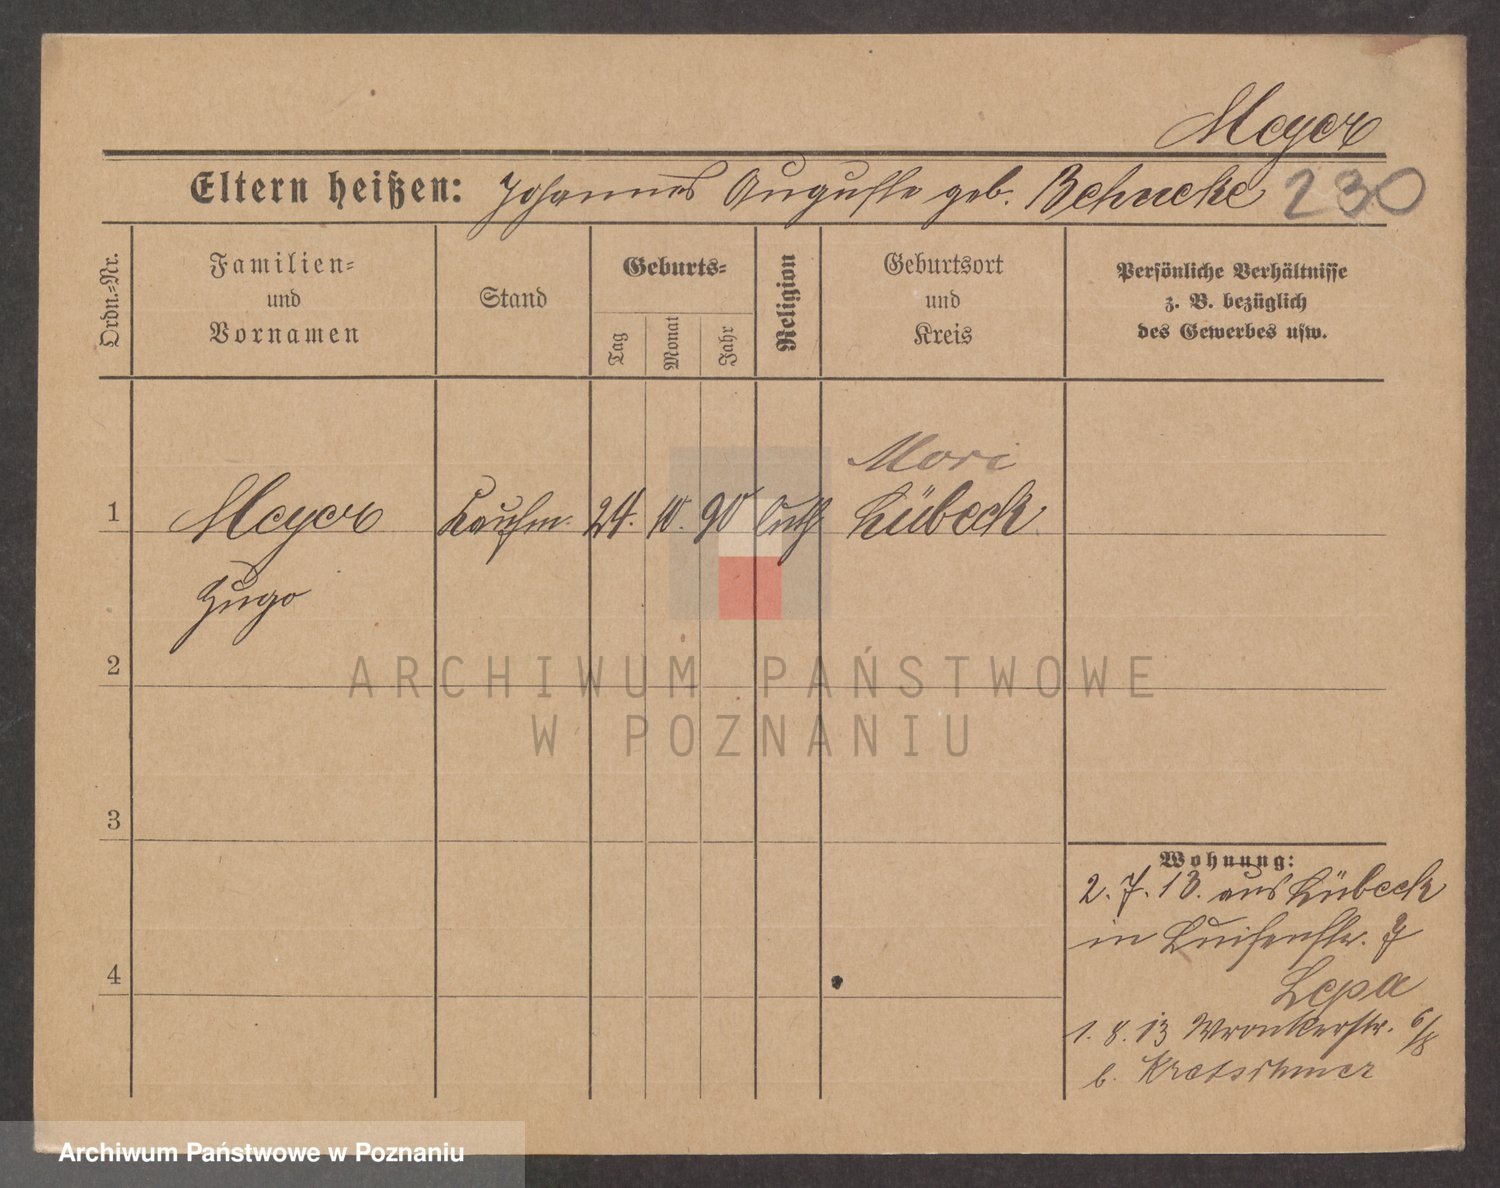 Meyer
Eltern heißen: Johannes Auguste geb. Behncke 230
Ordn.-Nr.
Familien-
und
Vornamen
Stand
Geburts-
Tag
Monat
Jahr
Religion
Geburtsort
und
Kreis
Persönliche Verhältnisse
z. B. bezüglich
des Gewerbes usw.
Mori
1 Meyer Kaufm. 24. 10. 90 luth Lübeck
Hugo
2
3
4
Wohnung:
2. 7. 13. aus Lübeck
in Luisenstr. 7
Lepa
1. 8. 13 Wronkerstr. 6/8
b. Kretschmer
ARCHIWUM PAŃSTWOWE
W POZNANIU
Archiwum Państwowe w Poznaniu